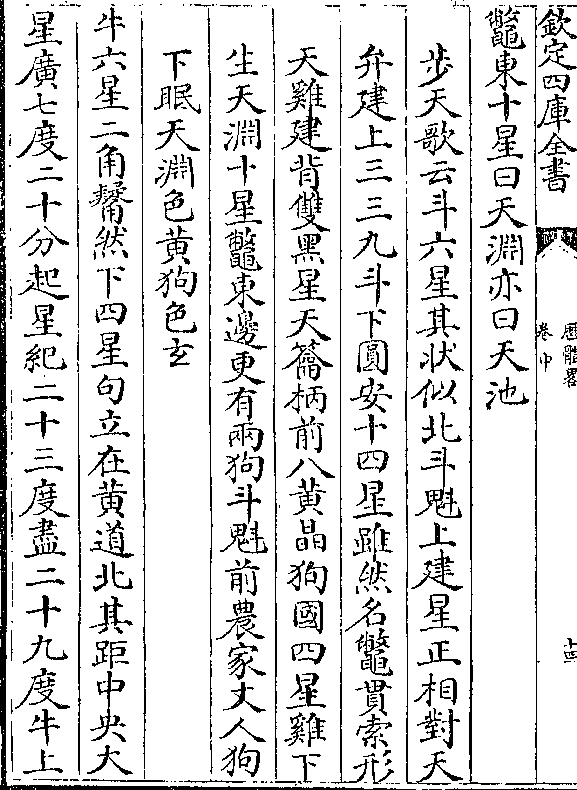 欽定四庫全書
曆體畧
卷中
十三
鼈東十星曰天淵亦曰天池
步天歌云斗六星其狀似北斗魁上建星正相對天
弁建上三三九斗下圓安十四星雖然名鼈貫索形
天雞建背雙黑星天籥柄前八黃晶狗國四星雞下
生天淵十星鼈東邊更有兩狗斗魁前農家丈人狗
下眠天淵色黃狗色玄
牛六星二角觺然下四星句立在黃道北其距中央大
星廣七度二十分起星紀二十三度盡二十九度牛上